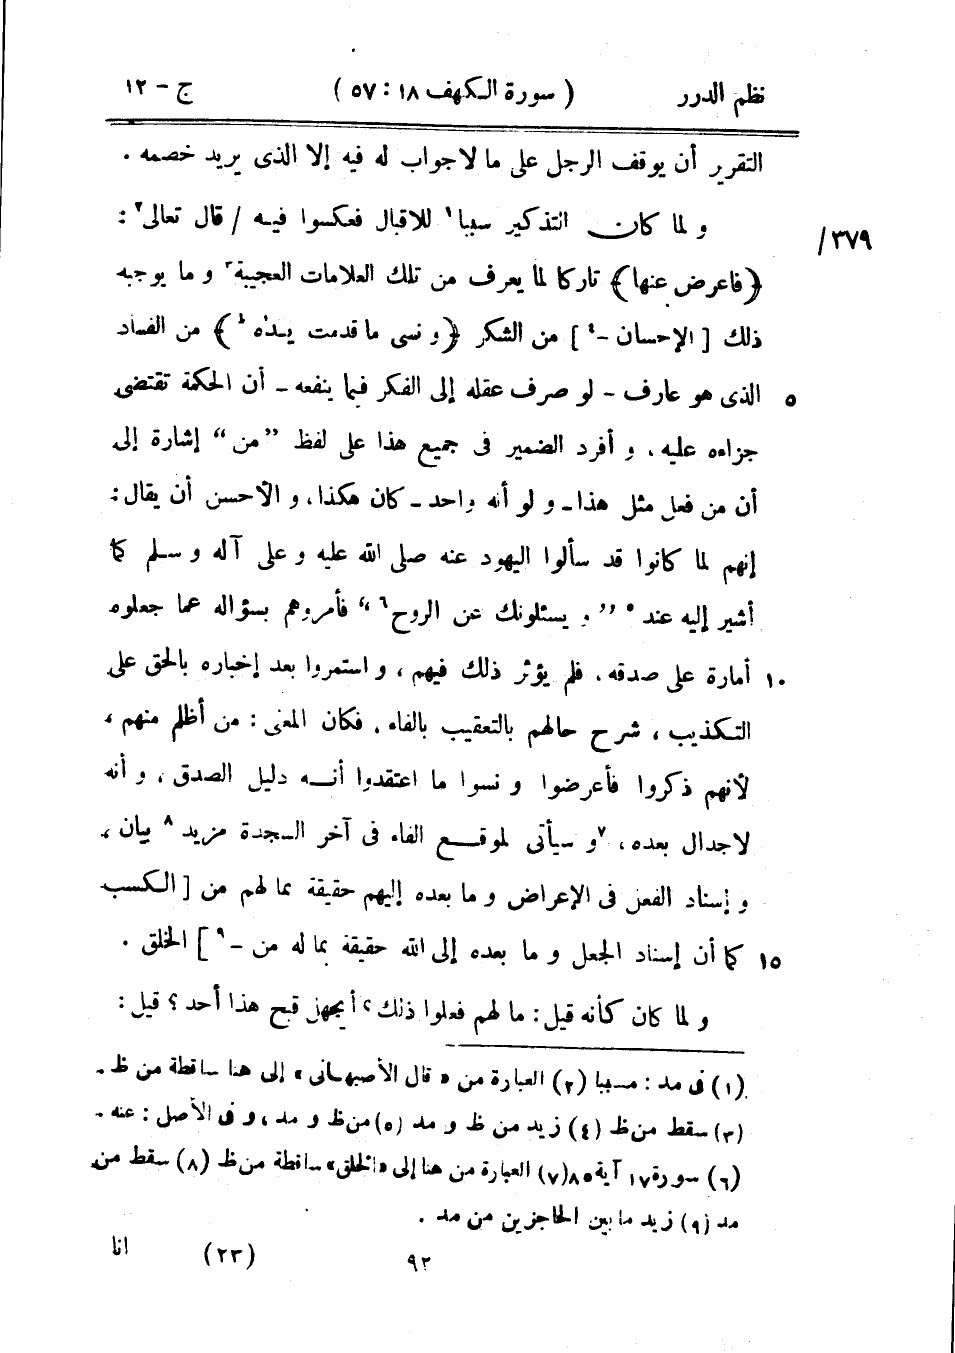 نظم الدرر ( سورة الكهف ١٨ : ٥٧ ) ج - ١٢
التقرير أن يوقف الرجل على ما لا جواب له فيه إلا الذى يريد خصمه .
و لما كان التذكير سببا١ للاقبال فعكسوا فيه / قال تعالى٢ : / ٣٧٩
﴿فاعرض عنها﴾ تاركا لما يعرف من تلك العلامات العجيبة٣ و ما يوجبه
ذلك [ الإحسان -٤ ] من الشكر ﴿و نسى ما قدمت يده٤﴾ من الفساد
٥ الذى هو عارف - لو صرف عقله إلى الفكر فيما ينفعه - أن الحكمة تقتضى
جزاءه عليه ، و أفرد الضمير فى جميع هذا على لفظ ”من“ إشارة إلى
أن من فعل مثل هذا - و لو أنه واحد - كان هكذا ، و الأحسن أن يقال :
إنهم لما كانوا قد سألوا اليهود عنه صلى الله عليه و على آله و سلم كما
أشير إليه عند٥ ”و يسئلونك عن الروح٦“ فأمروهم بسؤاله عما جعلوه
١٠ أمارة على صدقه ، فلم يؤثر ذلك فيهم ، و استمروا بعد إخباره بالحق على
التكذيب ، شرح حالهم بالتعقيب بالفاء ، فكان المعنى : من أظلم منهم ،
لأنهم ذكروا فأعرضوا و نسوا ما اعتقدوا أنه دليل الصدق ، و أنه
لا جدال بعده ، ٧و سيأتى لموقع الفاء فى آخر السجدة مزيد٨ بيان ،
و إسناد الفعل فى الإعراض و ما بعده إليهم حقيقة بما لهم من [ الكسب
١٥ كما أن إسناد الجعل و ما بعده إلى الله حقيقة بما له من -٩ ] الخلق .
و لما كان كأنه قيل : ما لهم فعلوا ذلك ؟ أيجهل قبح هذا أحد ؟ قيل :
(١) فى مد : مسببا (٢) العبارة من « قال الأصبهانى » إلى هنا ساقطة من ظ .
(٣) سقط من ظ (٤) زيد من ظ و مد (٥) من ظ و مد ، و فى الأصل : عنه .
(٦) سورة ١٧ آية ٨٥ (٧) العبارة من هنا إلى «الخلق» ساقطة من ظ (٨) سقط من
مد (٩) زيد ما بين الحاجزين من مد .
٩٢ (٢٣) انا